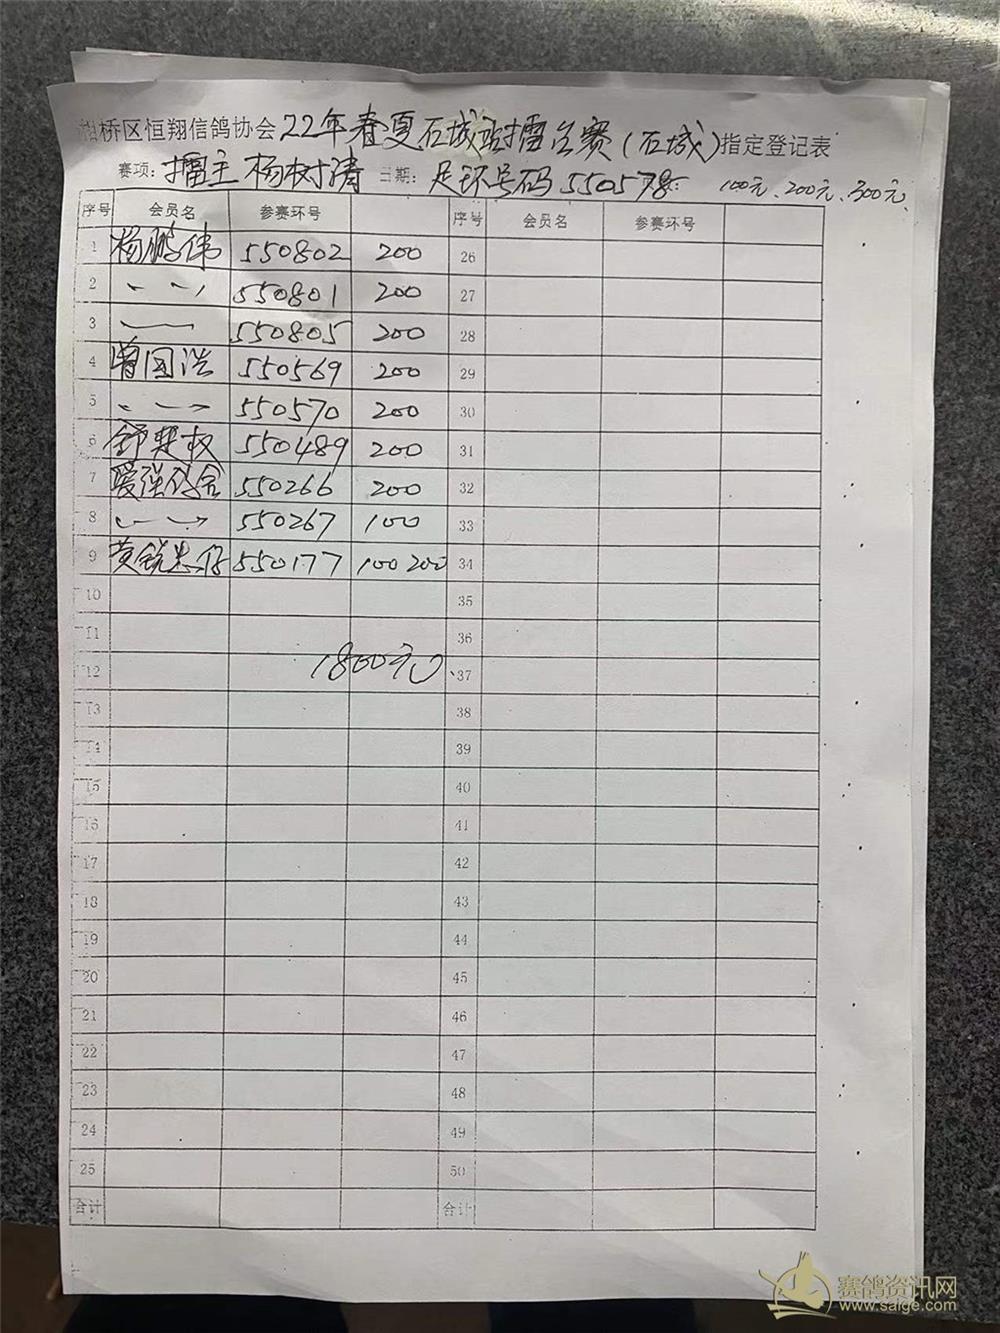 桥区恒翔信鸽协会22年春夏石城站擂台赛(石城)指定登记表
赛项:擂主 杨树清 日期: 足环号码550578 100元、200元、300元
序号 会员名 参赛环号 序号 会员名 参赛环号
1 杨鹏伟 550802 200 26
2 〃 550801 200 27
3 550805 200 28
4 曾国浩 550569 200 29
5 〃 550570 200 30
6 550489 200 31
7 550266 200 32
8 〃 550267 100 33
9 黄锐忠 仔 550177 100 200 34
10 35
11 36
12 1800元 37
13 38
14 39
15 40
16 41
17 42
18 43
19 44
20 45
21 46
22 47
23 48
24 49
25 50
合计 合计
赛鸽资讯网
www.saige.com